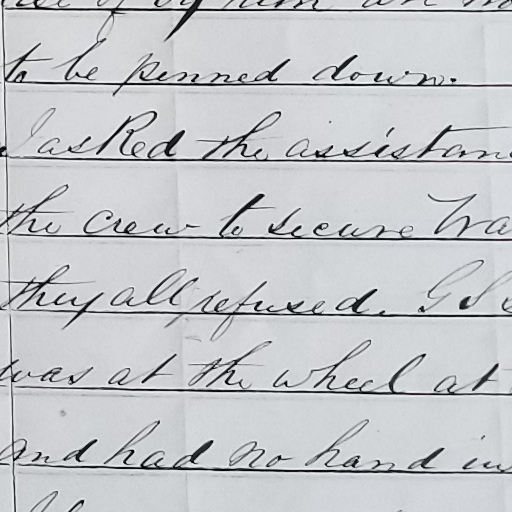 of by him
to be penned down.
I asked the assistan
the crew to secure Tra
they all refused. G S
was at the wheel at
and had no hand in